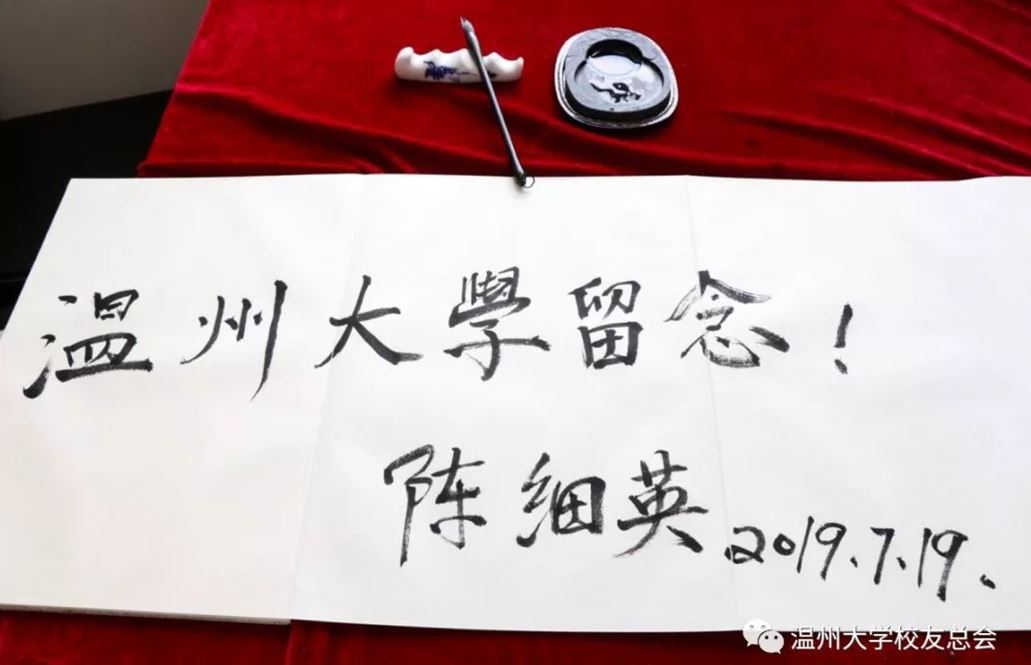 温州大學留念！
陈细英 2019.7.19.
温州大学校友总会